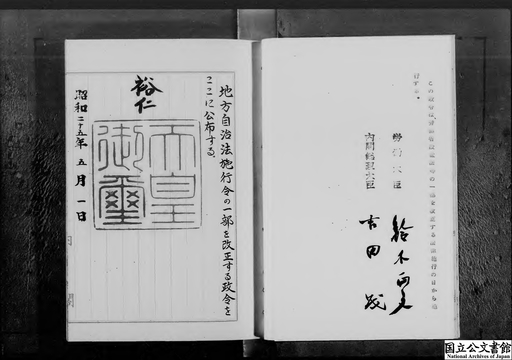 の一部を改正する法律施行の日から施
行する。
大臣 鈴木正文
内閣総理大臣 吉田茂
地方自治法施行令の一部を改正する政令を
ここに公布する
裕仁
天皇
御璽
昭和二十五年五月一日
国立公文書館
National Archives of Japan